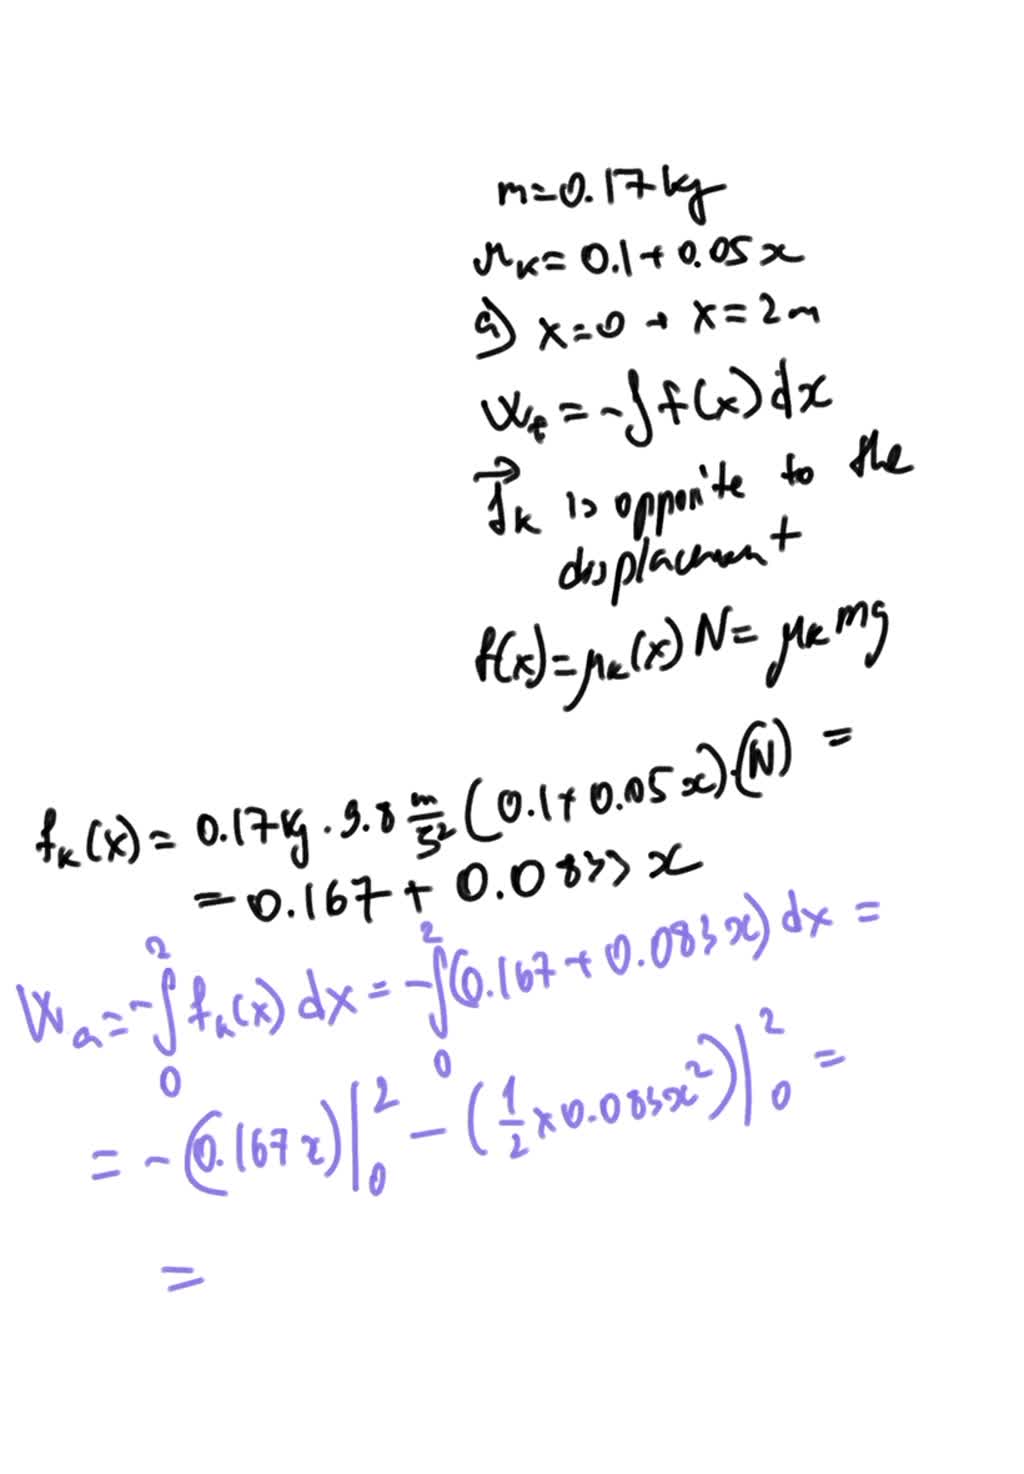 m=0.17kg
μₖ= 0.1+0.05x
a) x=0 → x=2m
W_f = -∫f(x)dx
f⃗ₖ is opposite to the
displacement
f(x)=μₖ(x)N= μₖmg
fₖ(x)= 0.17kg·9.8 m/s² (0.1+0.05x)·(N) =
=0.167+0.0833x
Wₐ=-∫₀² fₖ(x)dx=-∫₀²(0.167+0.083x)dx=
= -(0.167x)|₀² - (1/2 x 0.083x²)|₀² =
=